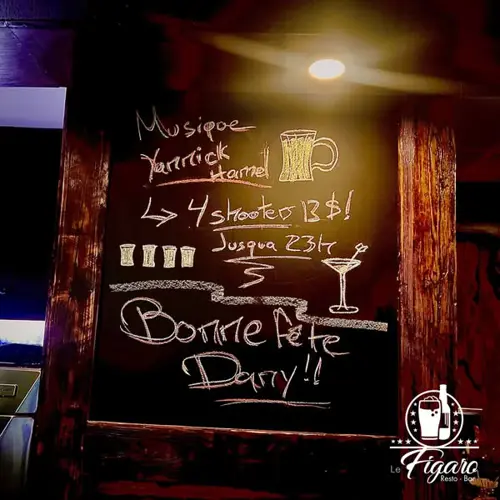 Musique
Yannick
Hamel
4 shooters 13$!
Jusqua 23h
Bonne fête
Dany!!
Le Figaro
Resto - Bar